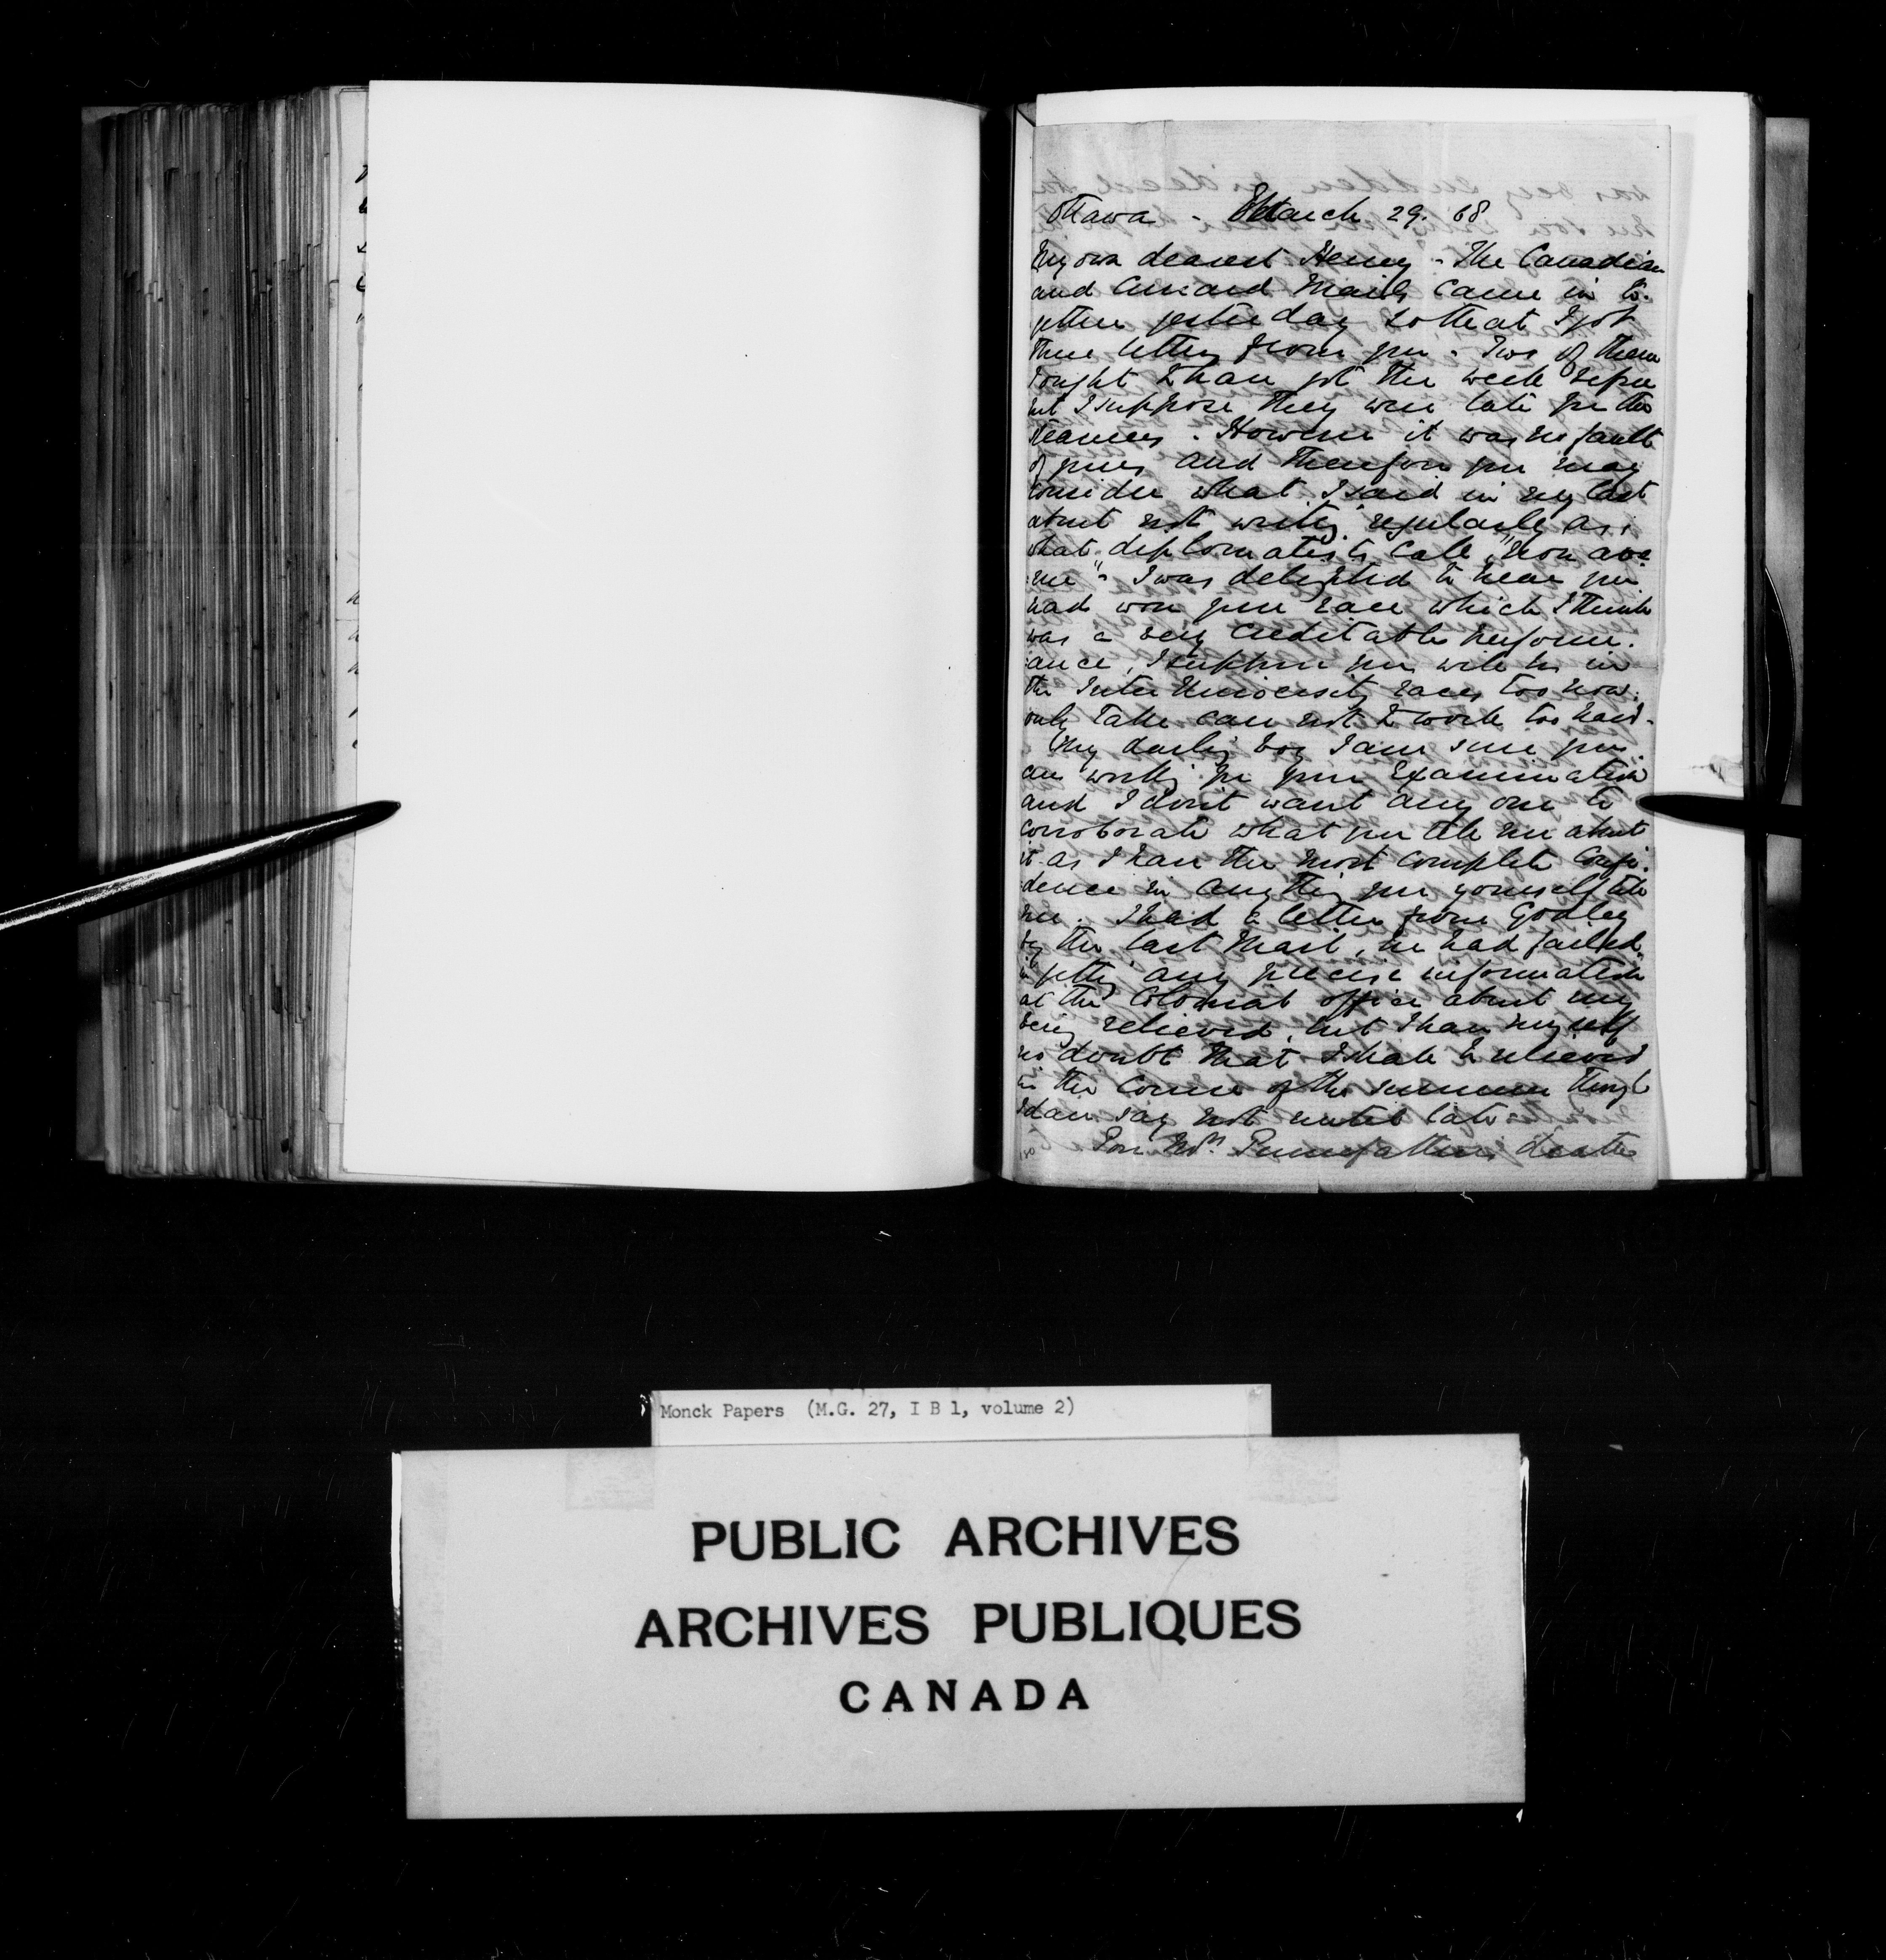 Ottawa - March 29. 68
My own dearest Henry - The Canadian
and Cunard Mails came in to-
gether yesterday so that I got
three letters from you - Two of them
I ought to have got the week before
but I suppose they were late for the
steamers. However it was no fault
of yours and therefore you may
consider what I said in my last
about not writing regularly as
what diplomatists call "non ave
nue" - I was delighted to hear you
had won your race which I think
was a very creditable perform-
ance, I suppose you will be in
the Inter University races too now,
only take care not to work too hard -
My darling boy I am sure you
are working for your Examination
and I don't want any one to
corroborate what you tell me about
it as I have the most complete confi-
dence in anything you yourself tell
me. I had a letter from Godley
by the last Mail, he had failed
in getting any precise information
at the Colonial office about my
being relieved, but I have myself
no doubt that I shall be relieved
in the course of the summer though
I dare say not until late -
Poor Mrs. Pennefather's death
180
Monck Papers (M.G. 27, I B 1, volume 2)
PUBLIC ARCHIVES
ARCHIVES PUBLIQUES
CANADA